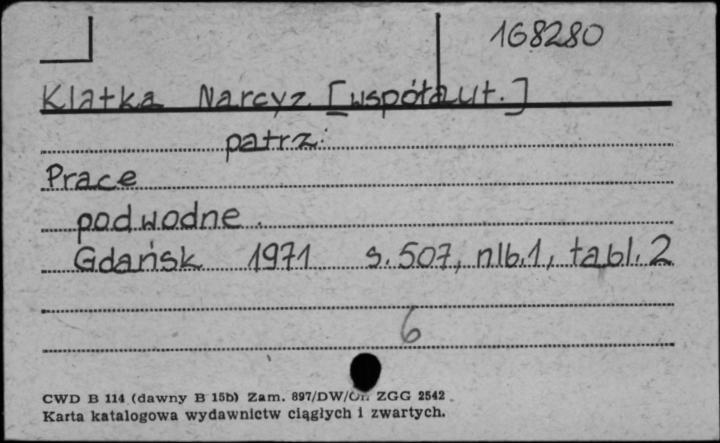 168280
Klatka Narcyz [współaut.]
patrz:
Prace
podwodne.
Gdańsk 1971 s. 507, nlb. 1, tabl. 2
6
CWD B 114 (dawny B 15b) Zam. 897/DW/ ZGG 2542
Karta katalogowa wydawnictw ciągłych i zwartych.